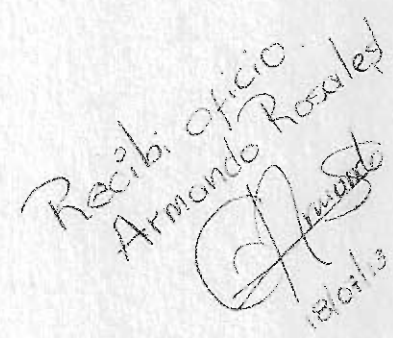 Recibi oficio.
Armando Rosales
Armando
18/07/13